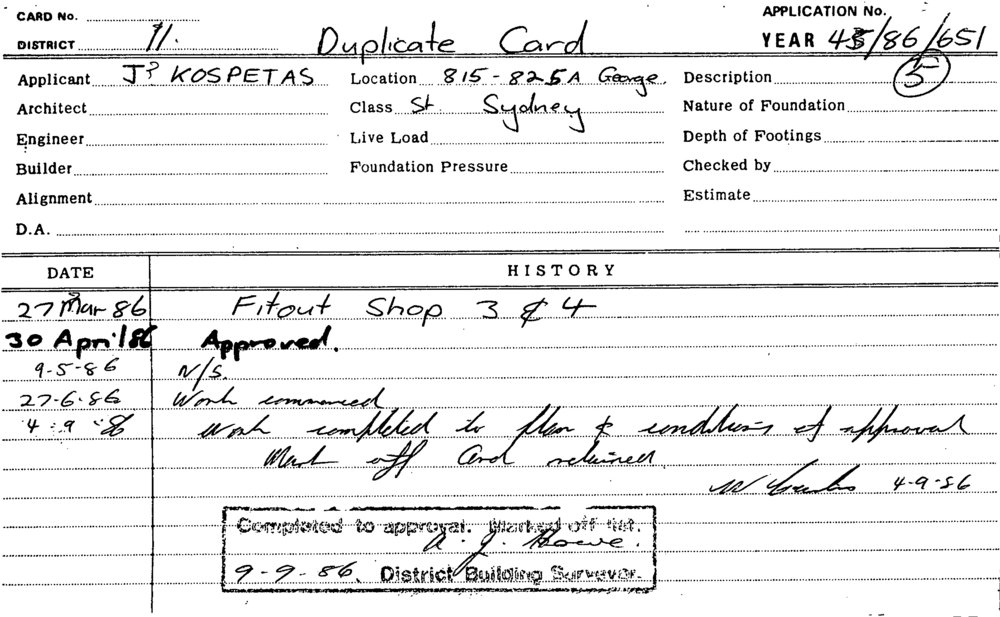 CARD No.
APPLICATION No.
DISTRICT 11. Duplicate Card YEAR 45/86/651
Applicant J? KOSPETAS Location 815-825A George Description 5
Architect Class St. Sydney Nature of Foundation
Engineer Live Load Depth of Footings
Builder Foundation Pressure Checked by
Alignment Estimate
D.A.
DATE HISTORY
27 Mar 86 Fitout Shop 3 & 4
30 April 86 Approved.
9-5-86 N/S.
27-6-86 Work commenced
4-9-86 Work completed to plan & conditions of approval
Mark off Card retained
4-9-86
Completed to approval. Marked off list.
A. J. Howe.
9-9-86. District Building Surveyor.